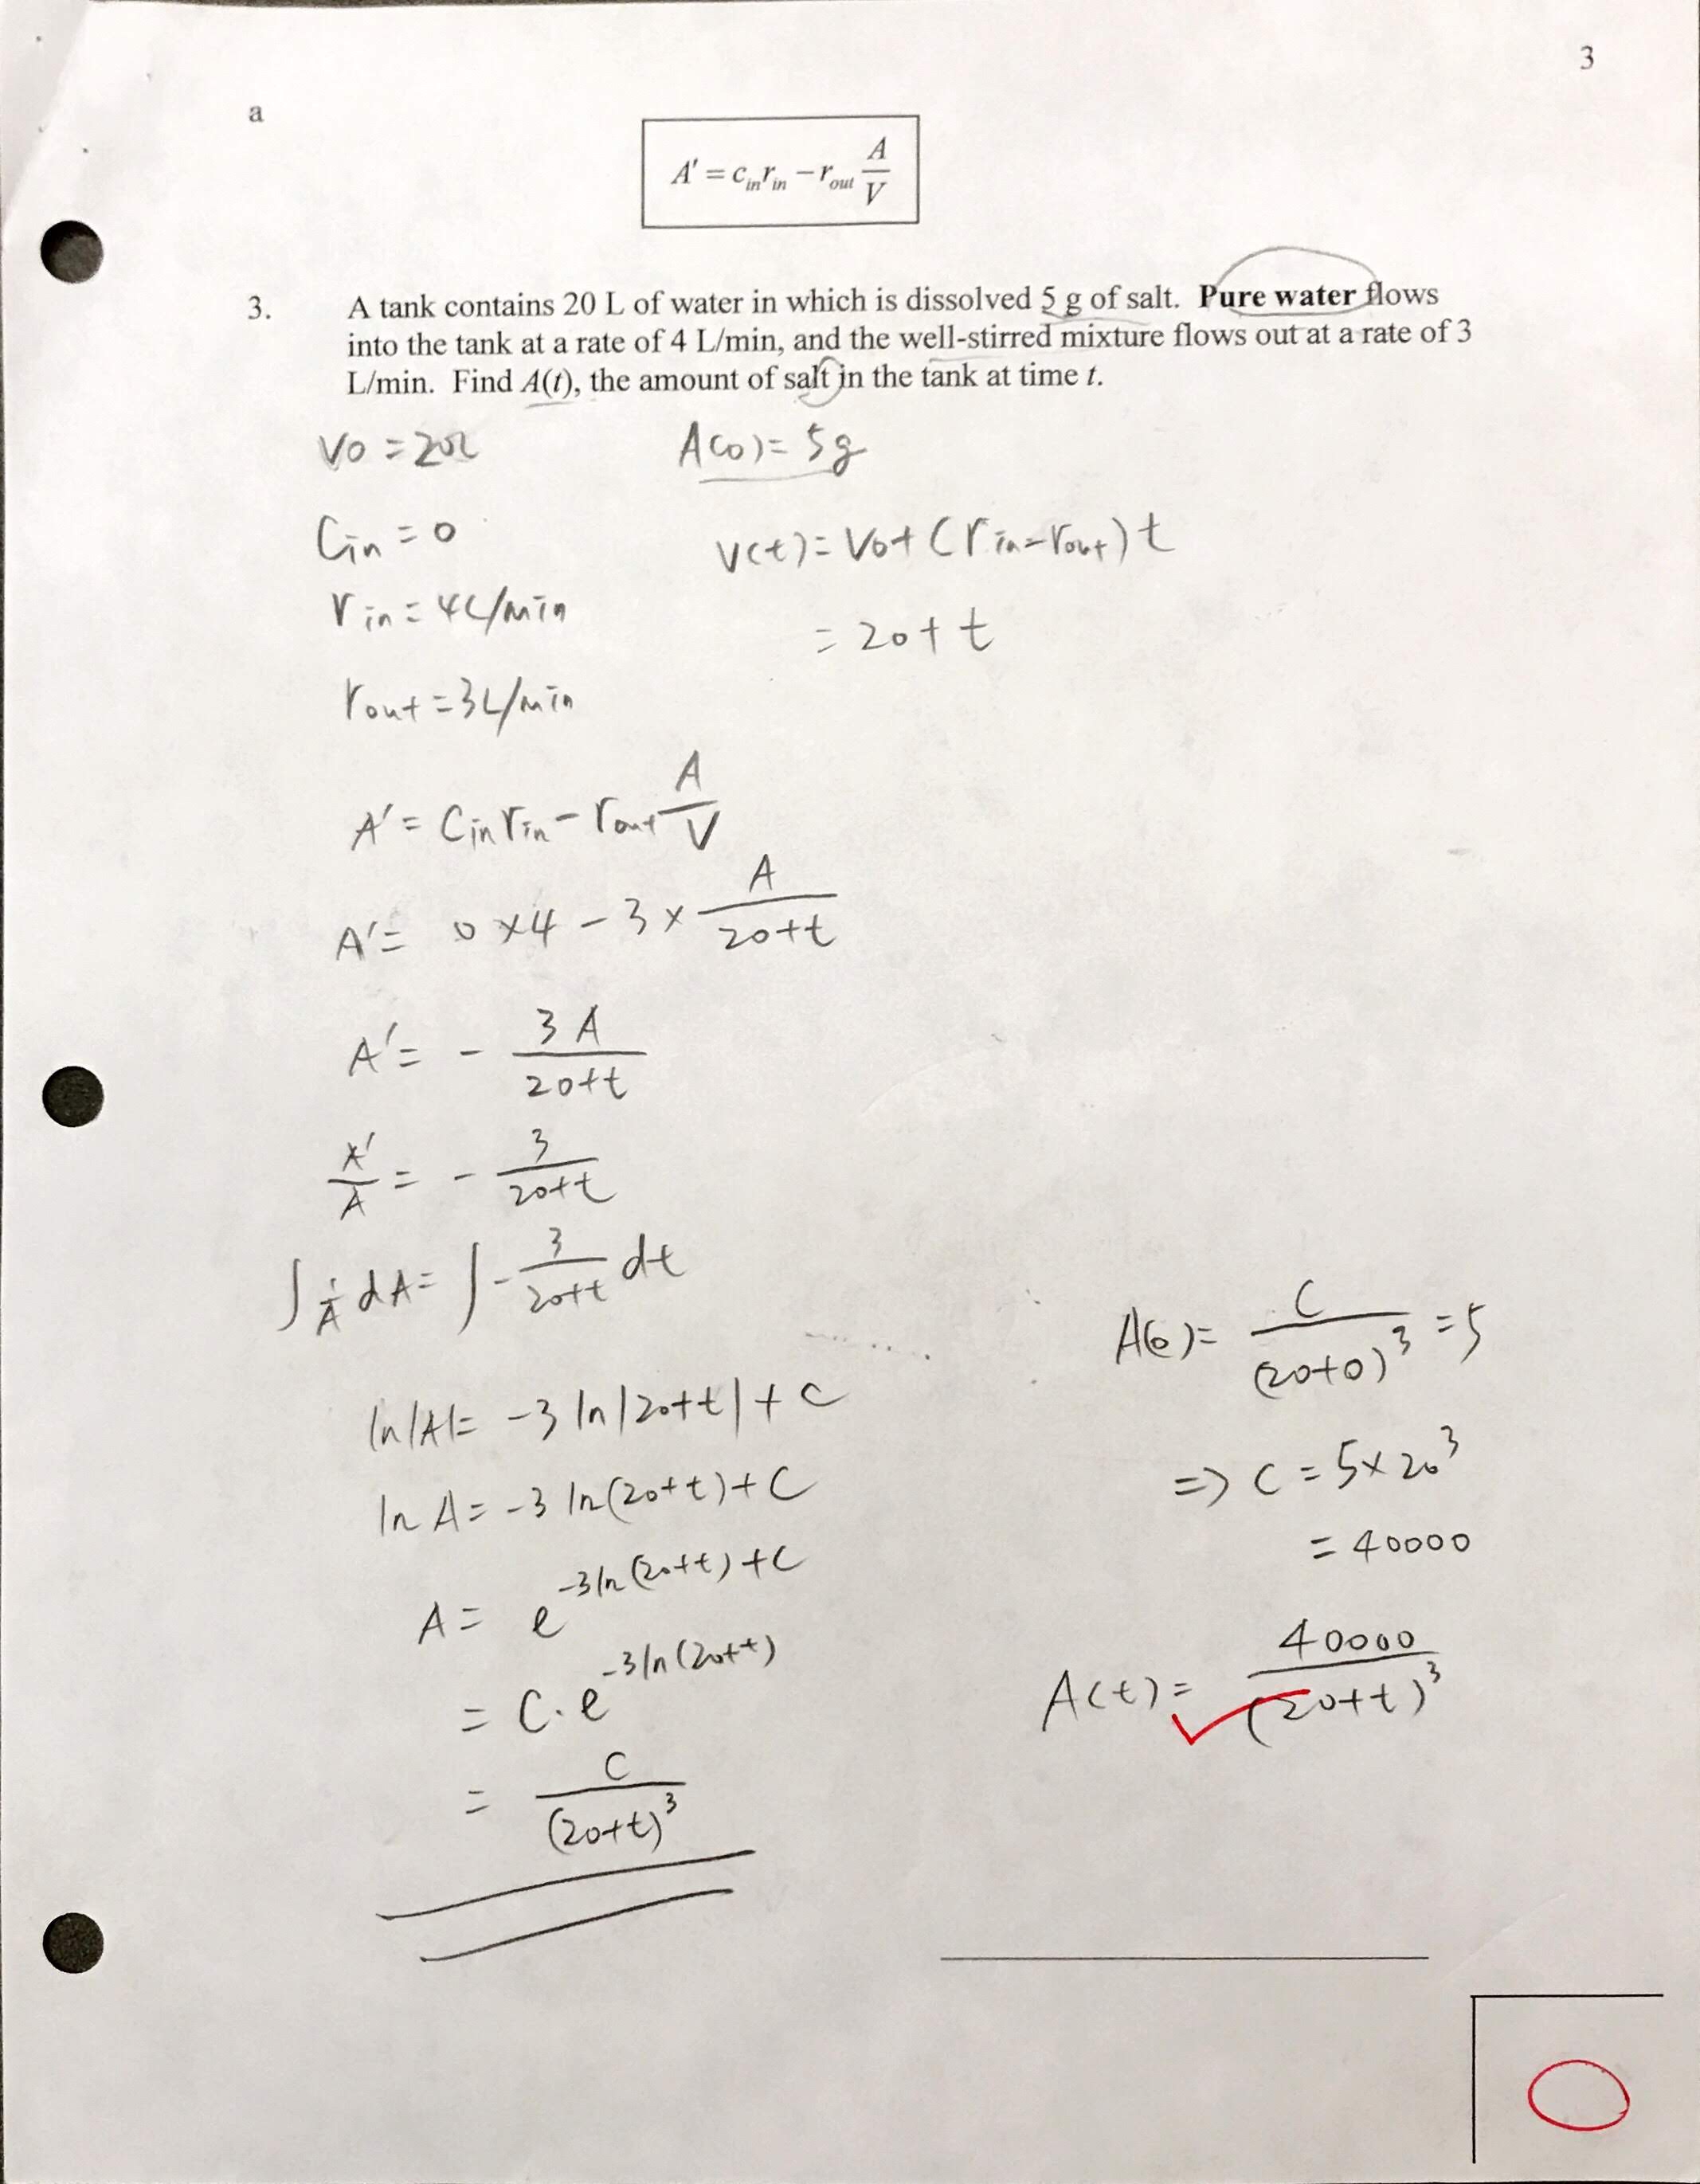 3
a
A' = c_in r_in − r_out A/V
3. A tank contains 20 L of water in which is dissolved 5 g of salt. Pure water flows
into the tank at a rate of 4 L/min, and the well-stirred mixture flows out at a rate of 3
L/min. Find A(t), the amount of salt in the tank at time t.
V0 = 20L
A(0) = 5g
Cin = 0
V(t) = V0 + (rin − rout) t
rin = 4L/min
= 20 + t
rout = 3L/min
A' = Cin rin − rout A/V
A' = 0 × 4 − 3 × A/(20+t)
A' = − 3A/(20+t)
A'/A = − 3/(20+t)
∫ 1/A dA = ∫ − 3/(20+t) dt
ln|A| = −3 ln|20+t| + C
ln A = −3 ln(20+t) + C
A = e^(−3 ln(20+t) + C)
= C · e^(−3 ln(20+t))
= C/(20+t)^3
A(0) = C/(20+0)^3 = 5
=> C = 5 × 20^3
= 40000
A(t) = 40000/(20+t)^3